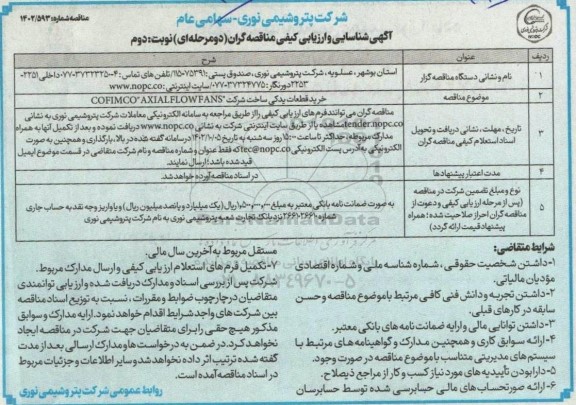 شرکت پتروشیمی نوری-سهامی عام
مناقصه شماره: ۱۴۰۲/۵۹۳
آگهی شناسایی و ارزیابی کیفی مناقصه گران (دو مرحله ای) نوبت: دوم
ردیف عنوان شرح
۱ نام و نشانی دستگاه مناقصه گزار
استان بوشهر، عسلویه، شرکت پتروشیمی نوری، صندوق پستی: ۷۵۳۹۱
سایت اینترنتی: www.nopc.co
۲ موضوع مناقصه خرید قطعات یدکی ساخت شرکت "COFIMCO"AXIALFLOWFANS
۳ تاریخ، مهلت، نشانی دریافت و تحویل اسناد استعلام کیفی مناقصه گران
مناقصه گران می توانند فرم های ارزیابی کیفی را از طریق مراجعه به سامانه الکترونیکی معاملات شرکت پتروشیمی نوری به نشانی
tender.nopc.co مشاهده یا از طریق سایت اینترنتی شرکت به نشانی www.nopc.co دریافت نموده و بعد از تکمیل آنها به همراه
مدارک مربوطه، حداکثر تا ساعت ۱۵:۰۰ روز سه شنبه به تاریخ ۱۴۰۳/۰۱/۰۵ در سامانه گفته شده در بالا، بارگذاری و همچنین به صورت
الکترونیکی به آدرس پست الکترونیکی tec@nopc.co که فقط عنوان و شماره مناقصه و نام شرکت متقاضی در قسمت موضوع ایمیل
قید شده باشد؛ ارسال نمایند.
۴ مدت اعتبار پیشنهادها در اسناد مناقصه آورده خواهد شد.
۵ نوع و مبلغ تضمین شرکت در مناقصه (پس از مرحله ارزیابی کیفی و دعوت از مناقصه گران احراز صلاحیت شده؛ همراه پیشنهاد قیمت ارائه گردد)
به صورت ضمانت نامه بانکی معتبر به مبلغ ۱٫۵۰۰٫۰۰۰٫۰۰۰ ریال (یک میلیارد و پانصد میلیون ریال) و یا واریز وجه نقد به حساب جاری
شماره ۲۶۶۱۰۲۶۶۱ نزد بانک تجارت شعبه پتروشیمی نوری به نام شرکت پتروشیمی نوری
شرایط متقاضی:
۱-داشتن شخصیت حقوقی، شماره شناسه ملی و شماره اقتصادی
مؤدیان مالیاتی.
۲-داشتن تجربه و دانش فنی کافی مرتبط با موضوع مناقصه و حسن
سابقه در کارهای قبلی.
۳-داشتن توانایی مالی و ارایه ضمانت نامه های بانکی معتبر.
۴-ارائه سوابق کاری و همچنین مدارک و گواهینامه های مرتبط با
سیستم های مدیریتی متناسب با موضوع مناقصه در صورت وجود.
۵-دارا بودن تأییدیه های مورد نیاز کسب و کار از مراجع ذیصلاح.
۶-ارائه صورتحساب های مالی حسابرسی شده توسط حسابرسان
مستقل مربوط به آخرین سال مالی.
۷-تکمیل فرم های استعلام ارزیابی کیفی و ارسال مدارک مربوط.
شرکت پس از بررسی اسناد و مدارک دریافت شده و ارزیابی توانمندی
متقاضیان در چارچوب ضوابط و مقررات، نسبت به توزیع اسناد مناقصه
بین شرکت های واجد شرایط اقدام خواهد نمود. ارایه مدارک و سوابق
مذکور هیچ حقی را برای متقاضیان جهت شرکت در مناقصه ایجاد
نخواهد کرد. در ضمن به درخواست ها و مدارک ارسالی بعد از مدت
گفته شده ترتیب اثر داده نخواهد شد و سایر اطلاعات و جزئیات مربوط
در اسناد مناقصه آمده است.
روابط عمومی شرکت پتروشیمی نوری